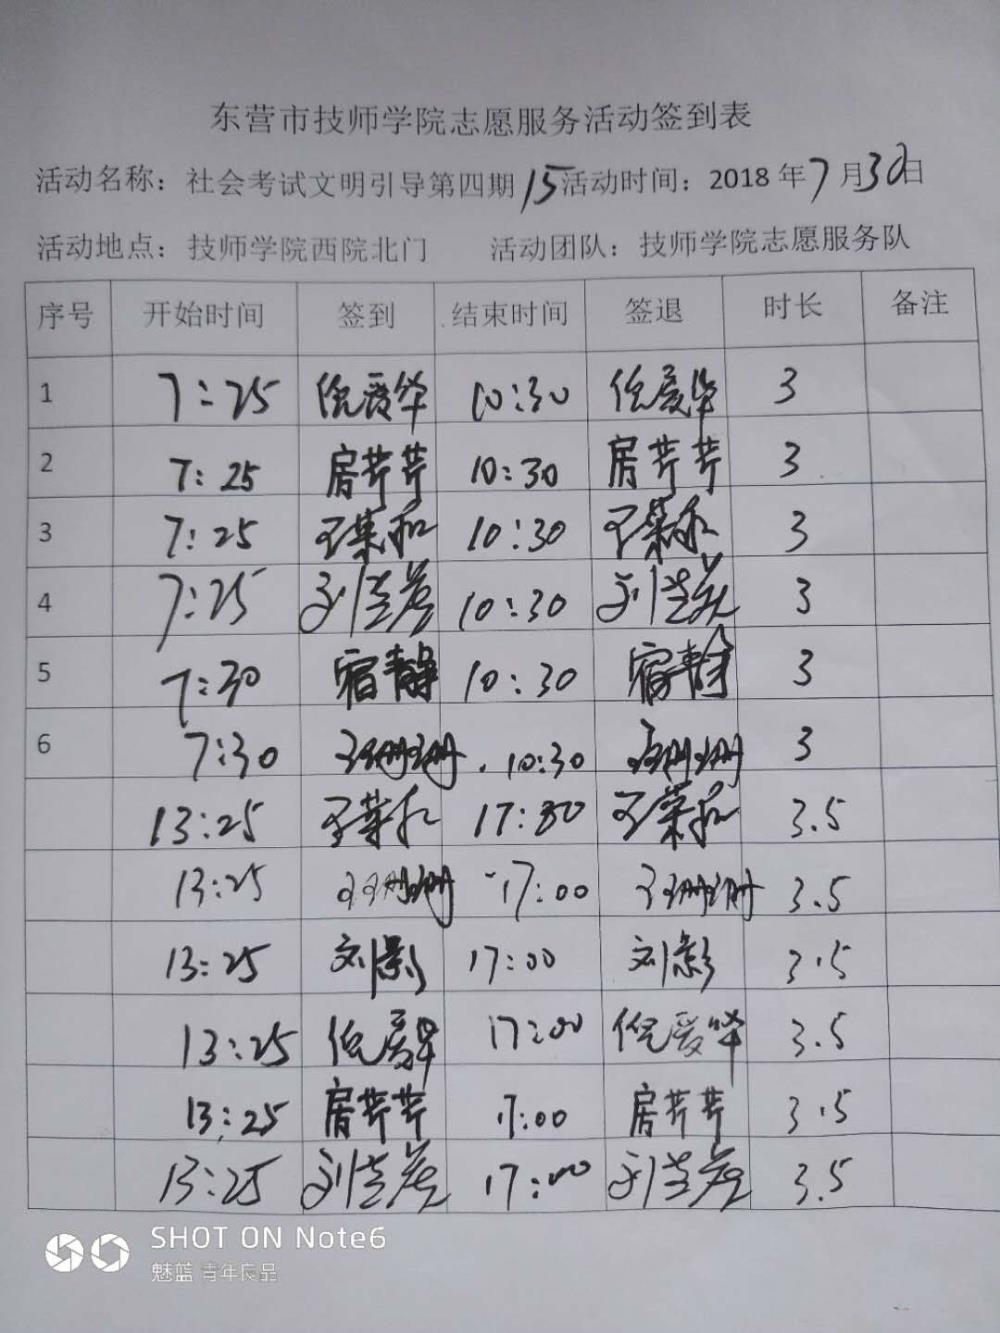 东营市技师学院志愿服务活动签到表
活动名称：社会考试文明引导第四期15活动时间：2018年7月30日
活动地点：技师学院西院北门 活动团队：技师学院志愿服务队
序号 开始时间 签到 结束时间 签退 时长 备注
1 7:25 倪爱华 10:30 倪爱华 3
2 7:25 房芹芹 10:30 房芹芹 3
3 7:25 10:30 3
4 7:25 10:30 3
5 7:30 宿静 10:30 宿静 3
6 7:30 王珊珊 10:30 王珊珊 3
13:25 3.5
13:25 王珊珊 17:00 王珊珊 3.5
13:25 刘影 17:00 刘影 3.5
13:25 倪爱华 17:00 倪爱华 3.5
13:25 房芹芹 17:00 房芹芹 3.5
13:25 17:00 3.5
SHOT ON Note6
魅蓝 青年良品